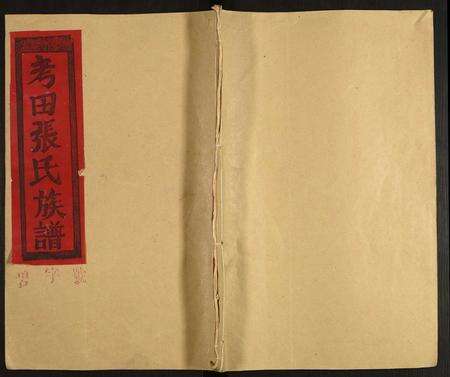 考田張氏族譜